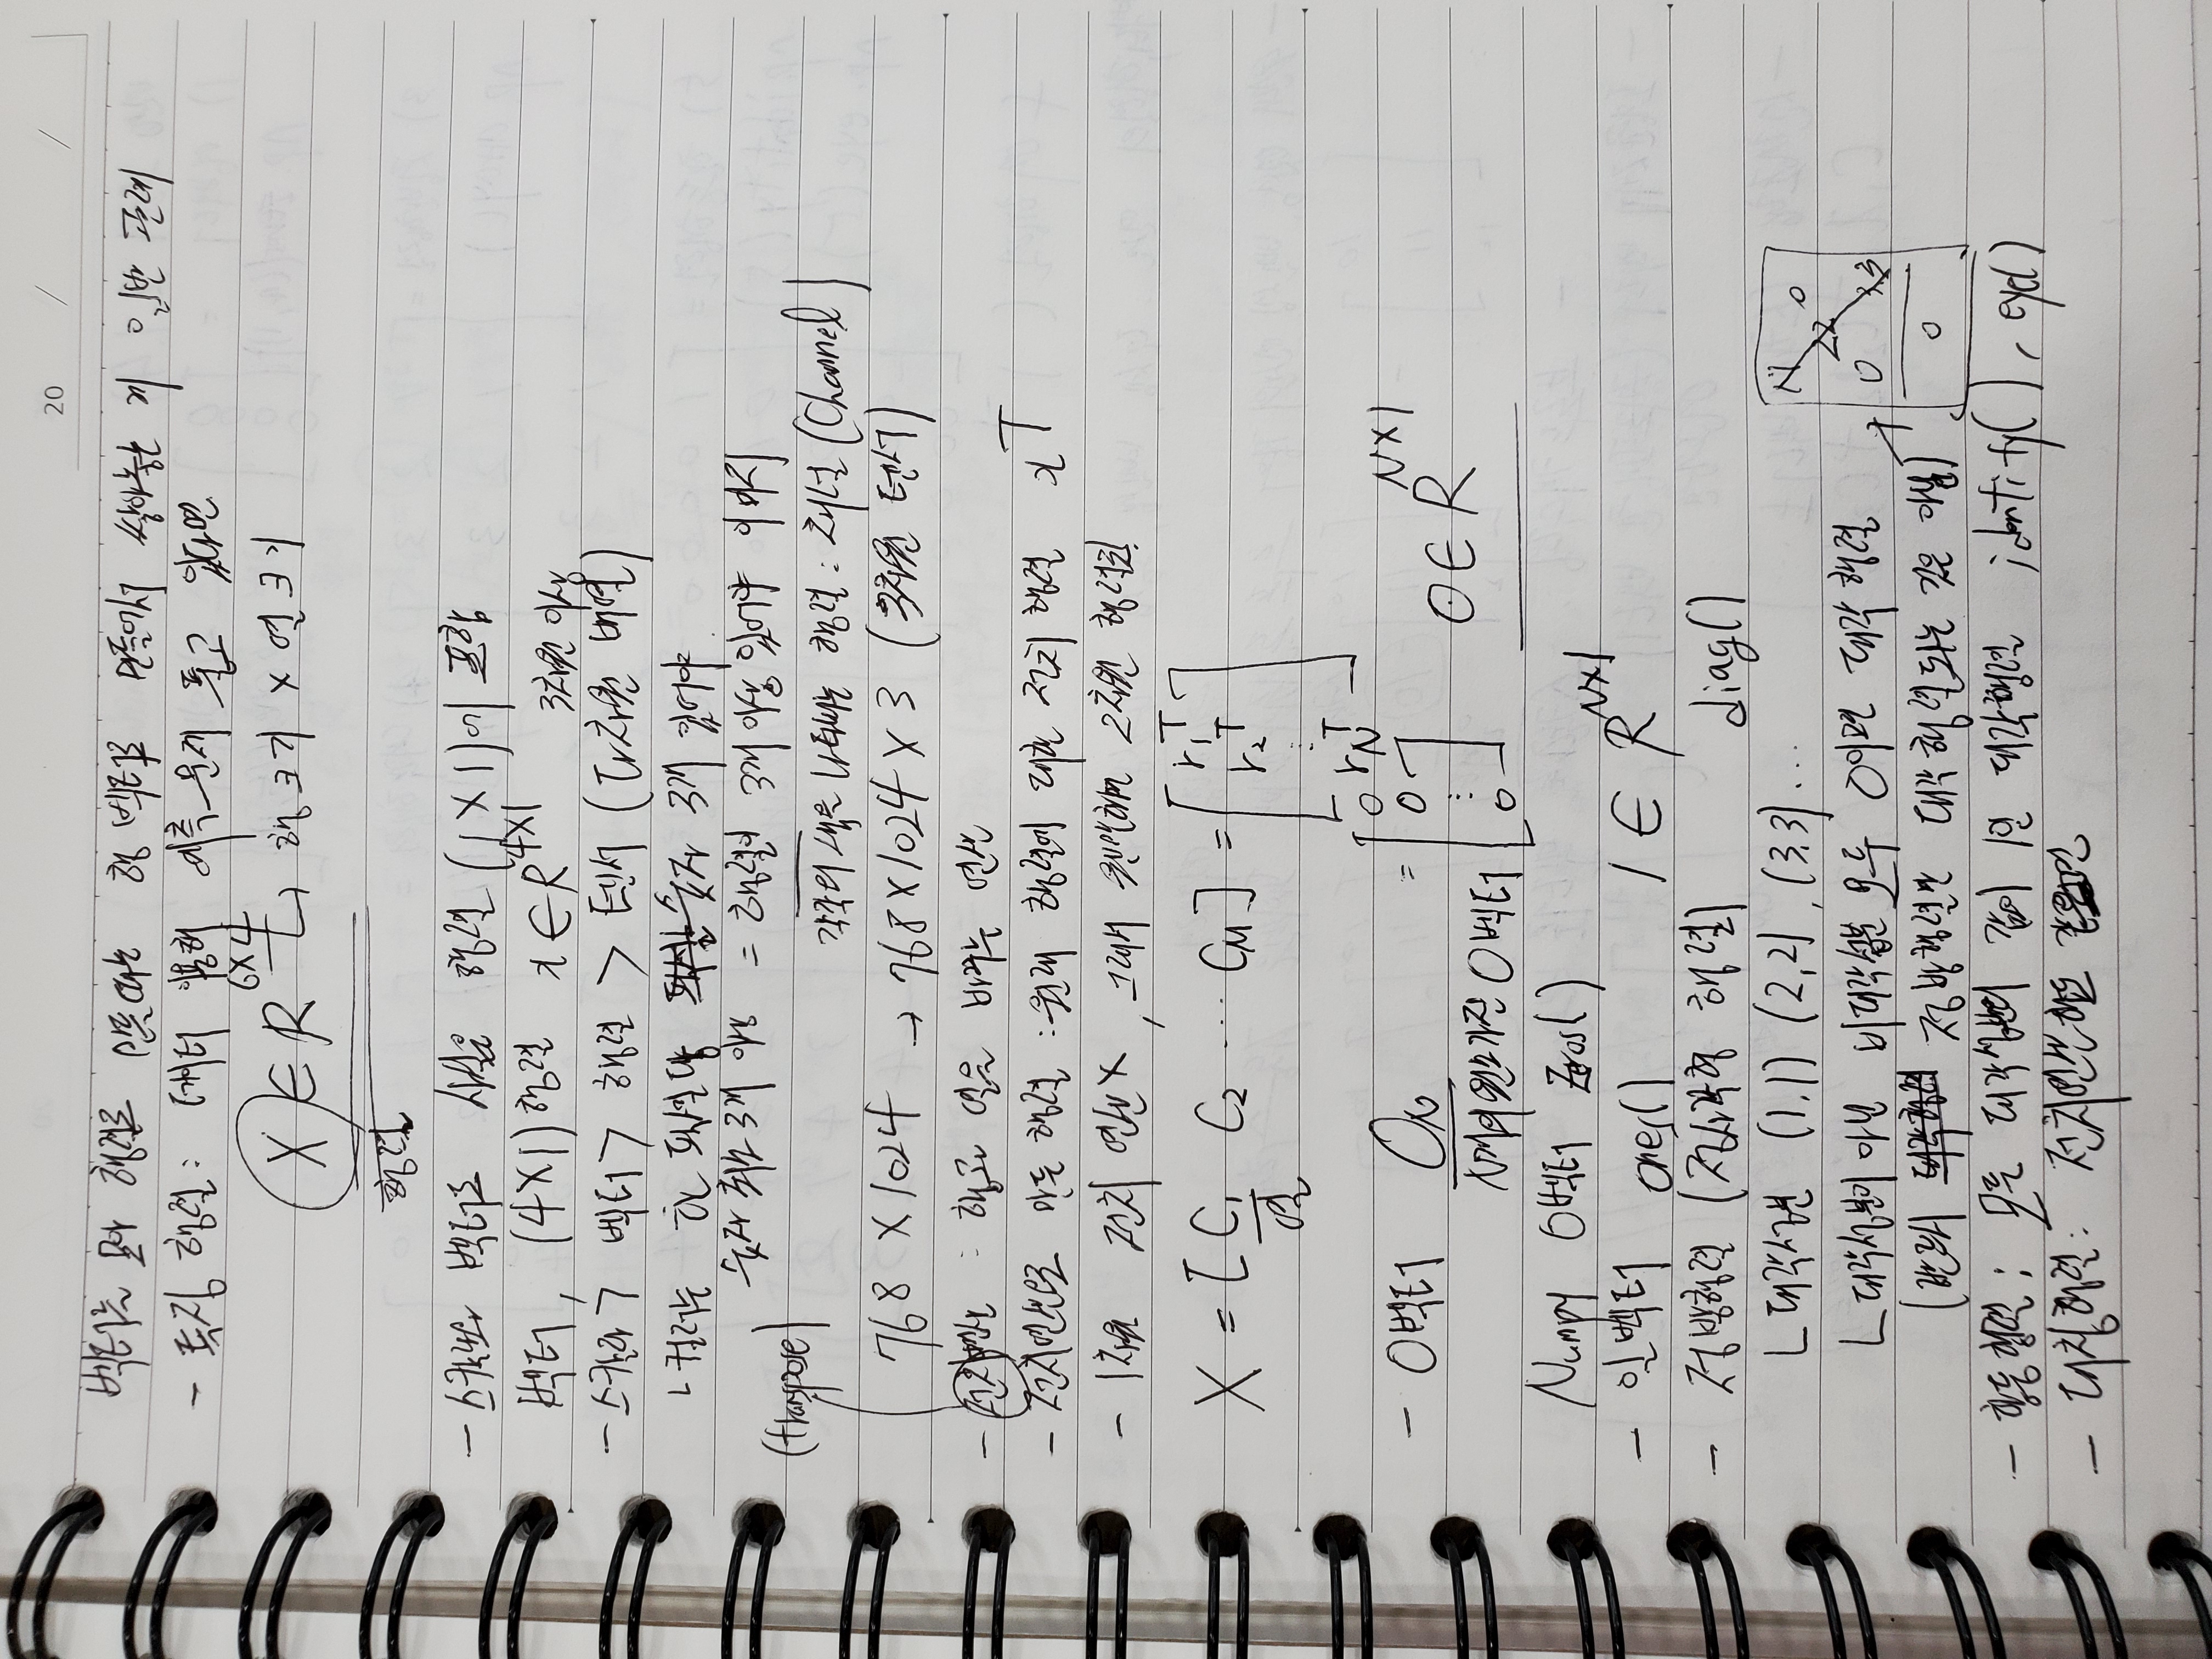 20 / /
벡터를 모아 행렬로 만들때는 행 벡터로 만들어서 쌓아놓는 게 일반 관례
- 특징 행렬 : 데이터 이용해 예측 문제 풀고 있다면
X ∈ R^6×4 ↳ 행 크기 × 열 크기
행렬
- 스칼라와 벡터도 사실은 행렬 (1×1)에 포함
벡터, (4×1) 행렬 x ∈ R^4×1
3차원 이상
- 스칼라 > 벡터 > 행렬 > 텐서 (다차원 배열)
ㄴ 컬러는 한 픽셀당 숫자 3개 있어야
숫자 최소 3개 이상 = 행렬이 3개 이상 있어야 이미지
(transpose)
각각의 색을 나타내는 행렬 : 채널 (Channel)
768 × 1024 → 768 × 1024 × 3 (3차원 텐서)
- 전치연산 : 행과 열을 바꾸는 연산
- 전치연산으로 만든 행렬 : 원래 행렬에 대한 전치 행렬 x^T
- 1차원 전치 연산 X, 그래서 2차원 행렬로
X = [C₁ C₂ ⋯ C_M] = [r₁^T
열
r₂^T
⋮
r_N^T]
- 0벡터 0_N = [0 0 ⋮ 0] 0 ∈ R^N×1
N개의 원소 가진 0벡터
Numpy 0벡터 zeros()
- 일벡터 ones() 1 ∈ R^N×1
- 정방행렬 (정사각형 행렬) diag()
ㄴ 대각성분 (1,1) (2,2), (3,3) ...
11 0
22
0 33
0
ㄴ 대각성분이 아닌 비대각성분 모두 0이면 대각 행렬
(반드시 정방행렬만 대각 행렬되는 것은 아님) →
- 항등행렬 ; 모든 대각성분의 값이 1인 대각행렬 identity(), eye()
- 대칭행렬 : 전치연산해도 같으면